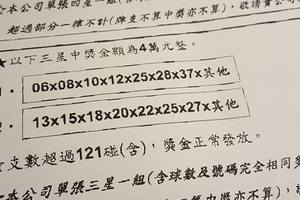 本公司單張四星一組(含
超過部分一律不計(牌支不算中獎亦不算),敬請貴公司
★以下三星中獎金額為4萬元整。
06x08x10x12x25x28x37x其他
2. 13x15x18x20x22x25x27x其他
支數超過121碰(含),獎金正常發放。
本公司單張三星一組(含球數及號碼完全相同
中獎亦不算),敬